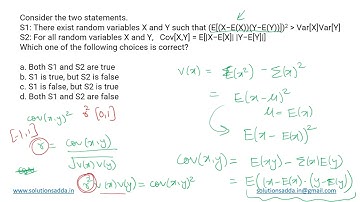 Consider the two statements.
S1: There exist random variables X and Y such that (E[(X−E(X))(Y−E(Y))])² > Var[X]Var[Y]
S2: For all random variables X and Y, Cov[X,Y] = E[|X−E[X]| |Y−E[Y]|]
Which one of the following choices is correct?
a. Both S1 and S2 are true
b. S1 is true, but S2 is false
c. S1 is false, but S2 is true
d. Both S1 and S2 are false
V(x) = E(x²) − E(x)²
= E(x−μ)²
μ − E(x)
E(x − E(x))²
cov(x,y)² r² [0,1]
[-1,1]
r = cov(x,y)
√v(x)v(y)
r² v(x) v(y) = cov(x,y)²
cov(x,y) = E(xy) − E(x)E(y)
= E((x−E(x))(y−E(y))
www.solutionsadda.in
solutionsadda.in@gmail.com